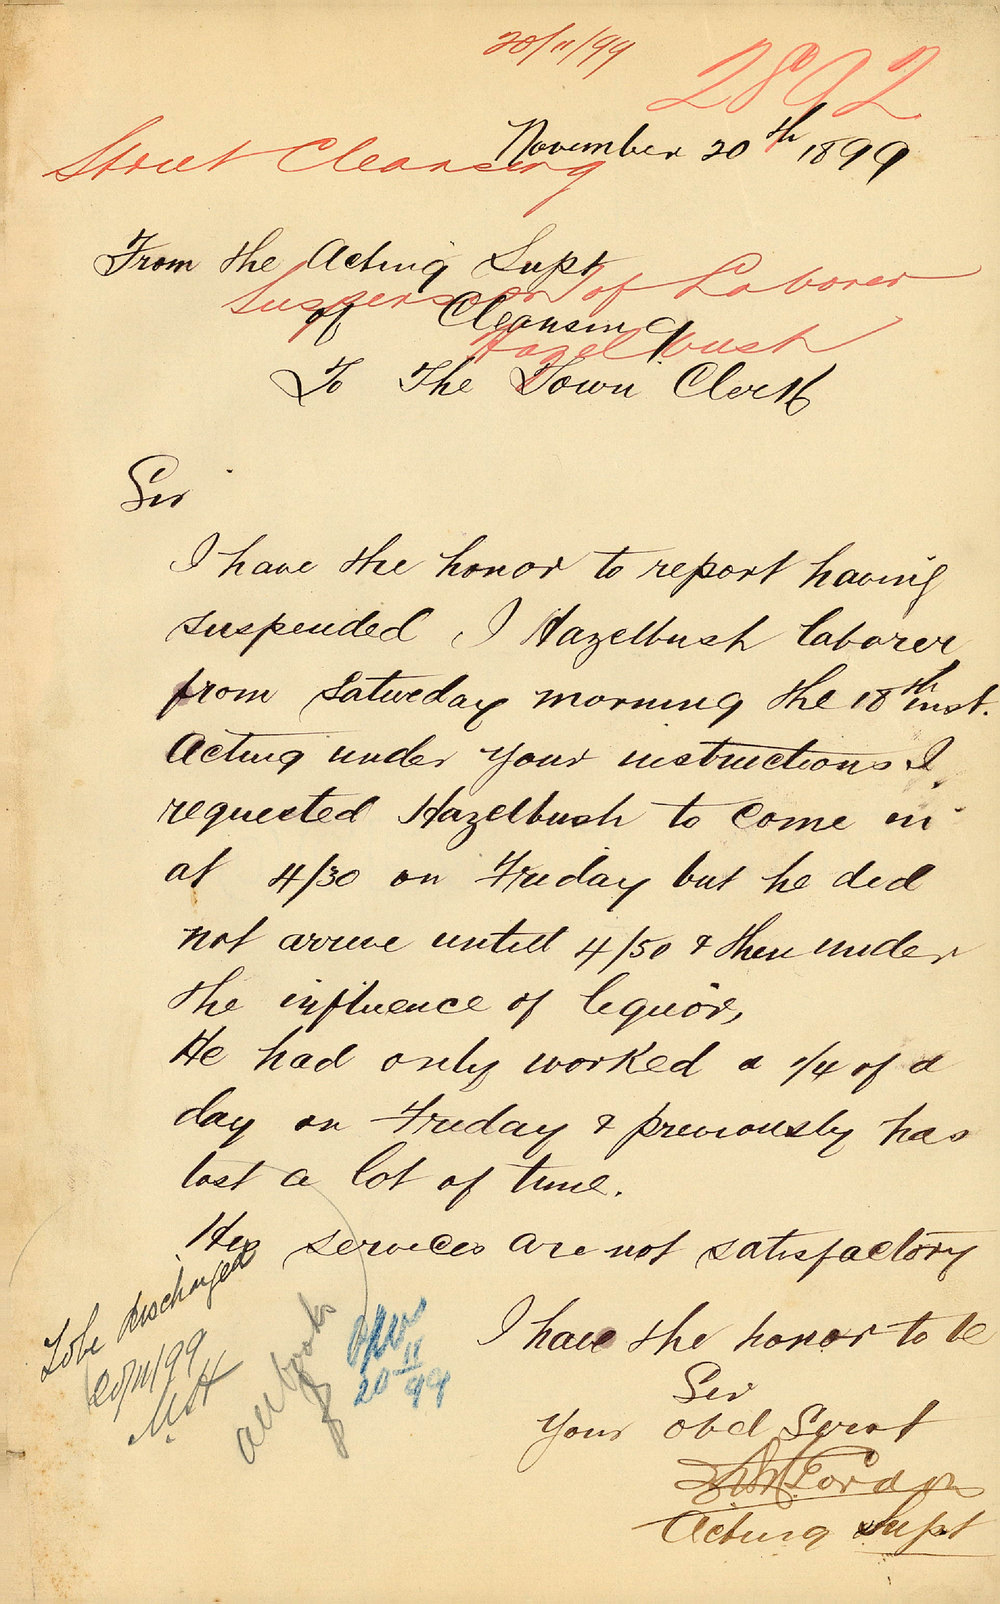 20/11/99
2892
November 20th 1899
Street Cleansing
From the Acting Supt
Suspension of Laborer
of Cleansing
Hazelbush
To The Town Clerk
Sir
I have the honor to report having
suspended J Hazelbush laborer
from Saturday morning the 18th inst.
Acting under your instructions I
requested Hazelbush to come in
at 4/30 on Friday but he did
not arrive untill 4/50 & then under
the influence of liquor,
He had only worked a 1/4 of a
day on Friday & previously has
lost a lot of time.
His services are not satisfactory
To be discharged
20/11/99
all books
20/11/99
I have the honor to be
Sir
Your obd Servt
Gordon
Acting Supt